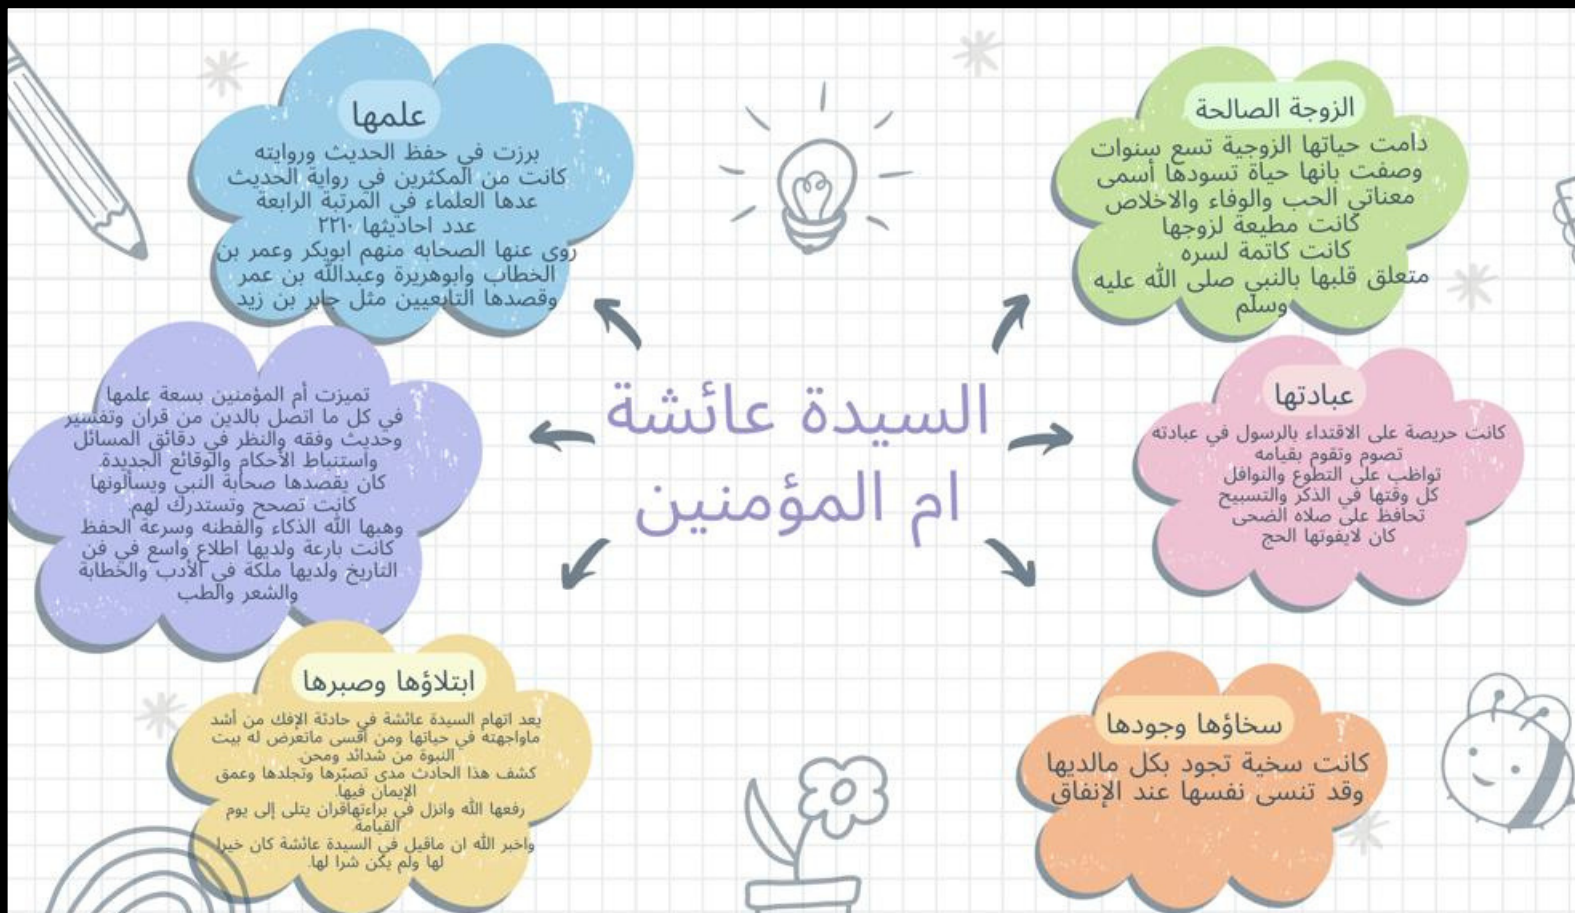 السيدة عائشة
ام المؤمنين
الزوجة الصالحة
دامت حياتها الزوجية تسع سنوات
وصفت بانها حياة تسودها أسمى
معناتي الحب والوفاء والاخلاص
كانت مطيعة لزوجها
كانت كاتمة لسره
متعلق قلبها بالنبي صلى الله عليه
وسلم
عبادتها
كانت حريصة على الاقتداء بالرسول في عبادته
تصوم وتقوم بقيامه
تواظب على التطوع والنوافل
كل وقتها في الذكر والتسبيح
تحافظ على صلاه الضحى
كان لايفوتها الحج
سخاؤها وجودها
كانت سخية تجود بكل مالديها
وقد تنسى نفسها عند الإنفاق
علمها
برزت في حفظ الحديث وروايته
كانت من المكثرين في رواية الحديث
عدها العلماء في المرتبة الرابعة
عدد احاديثها ٢٢١٠
روى عنها الصحابه منهم ابوبكر وعمر بن
الخطاب وابوهريرة وعبدالله بن عمر
وقصدها التابعيين مثل جابر بن زيد
تميزت أم المؤمنين بسعة علمها
في كل ما اتصل بالدين من قران وتفسير
وحديث وفقه والنظر في دقائق المسائل
واستنباط الأحكام والوقائع الجديدة.
كان يقصدها صحابة النبي ويسألونها
كانت تصحح وتستدرك لهم.
وهبها الله الذكاء والفطنه وسرعة الحفظ
كانت بارعة ولديها اطلاع واسع في فن
التاريخ ولديها ملكة في الأدب والخطابة
والشعر والطب
ابتلاؤها وصبرها
يعد اتهام السيدة عائشة في حادثة الإفك من أشد
ماواجهته في حياتها ومن أقسى ماتعرض له بيت
النبوة من شدائد ومحن.
كشف هذا الحادث مدى تصبّرها وتجلدها وعمق
الإيمان فيها.
رفعها الله وانزل في براءتهاقران يتلى إلى يوم
القيامة.
واخبر الله ان ماقيل في السيدة عائشة كان خيرا
لها ولم يكن شرا لها.